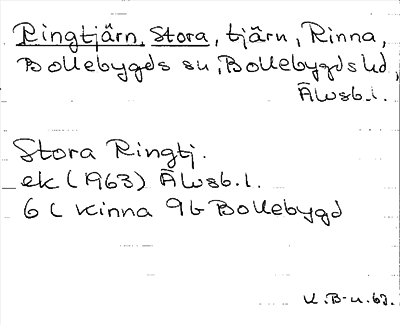 Ringtjärn, Stora, tjärn, Rinna,
Bollebygds sn, Bollebygds hd,
Älvsb.l.
Stora Ringtj.
ek (1963) Älvsb.l.
6C Kinna 9b Bollebygd